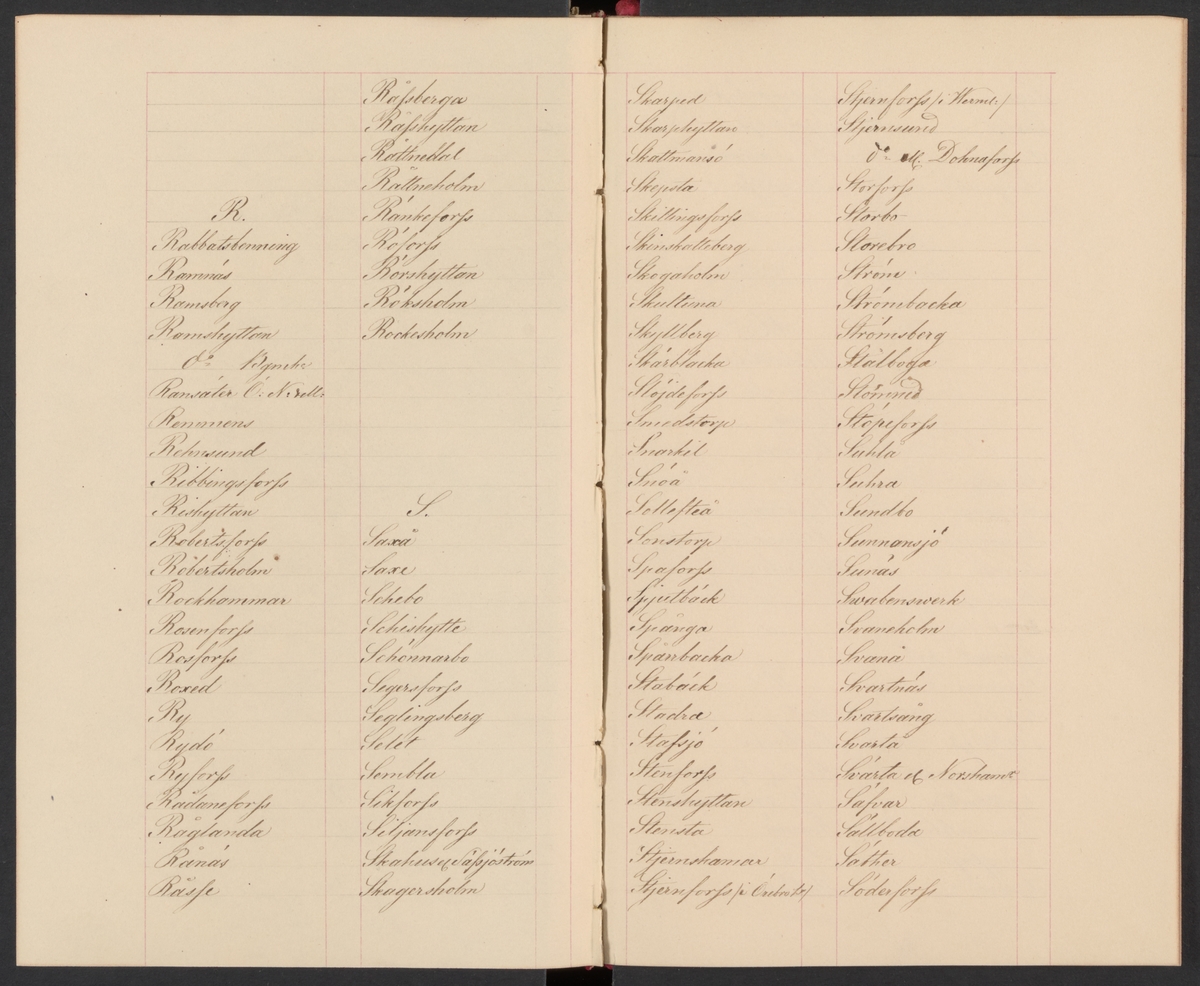 R.
Rabbatsbenning
Ramnäs
Ramsberg
Ramshyttan
do
Ransäter
Remmens
Rehnsund
Ribbingsforss
Rishyttan
Robertsforss
Robertsholm
Rockhammar
Rosenforss
Rosforss
Roxed
Ry
Rydö
Ryforss
Rådaneforss
Råglanda
Rånäs
Råsse
Råssberga
Råfshyttan
Rättnedal
Rättneholm
Ränkeforss
Röforss
Rörshyttan
Röksholm
Rockesholm
S.
Saxå
Saxe
Schebo
Schishytte
Schönnarbo
Segersforss
Seglingsberg
Selet
Sembla
Sikforss
Siljansforss
Skahuse & Säfsjöström
Skagersholm
Skarped
Skarphyttan
Skattmansö
Skepsta
Skillingsforss
Skinskatteberg
Skogaholm
Skultuna
Skyllberg
Skärblacka
Slöjdeforss
Smedstorp
Snarkil
Snöå
Sollefteå
Sonstorp
Spaforss
Spjutbäck
Spånga
Spärrbacka
Stabäck
Stadra
Stafsjö
Stenforss
Stenshyttan
Stensta
Stjernshamar
Stjernforss (i Örebro lä)
Stjernforss (i Werml.)
Stjernsund
do & Dohnaforss
Storforss
Storbo
Storebro
Ström
Strömbacka
Strömsberg
Stålboga
Stömned
Stöpeforss
Suhlå
Suhra
Sundbo
Sunnansjö
Sunäs
Swabenswerk
Svaneholm
Svanå
Svartnäs
Svartsång
Svartå
Svärta & Norshamr
Säfvar
Sällboda
Säther
Söderforss